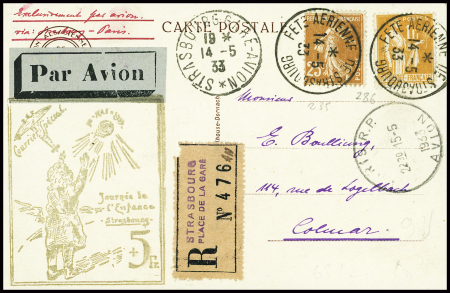 Exclusivement par avion.
via: Strasbourg - Paris.
CARTE POSTALE
Par Avion
STRASBOURG GARE-AVION
19 *
14 - 5
33
FÊTE AÉRIENNE DE STRASBOURG
14 - 5
33
25
FÊTE AÉRIENNE DE STRASBOURG
14 - 5
33
235
286
Monsieur
E. Boulliung,
114, rue de Logelbach
Colmar
22 30 15-5
STRASBOURG
PLACE DE LA GARE
R N° 476
Journée de
l'Enfance
- Strasbourg -
+5 Fr.